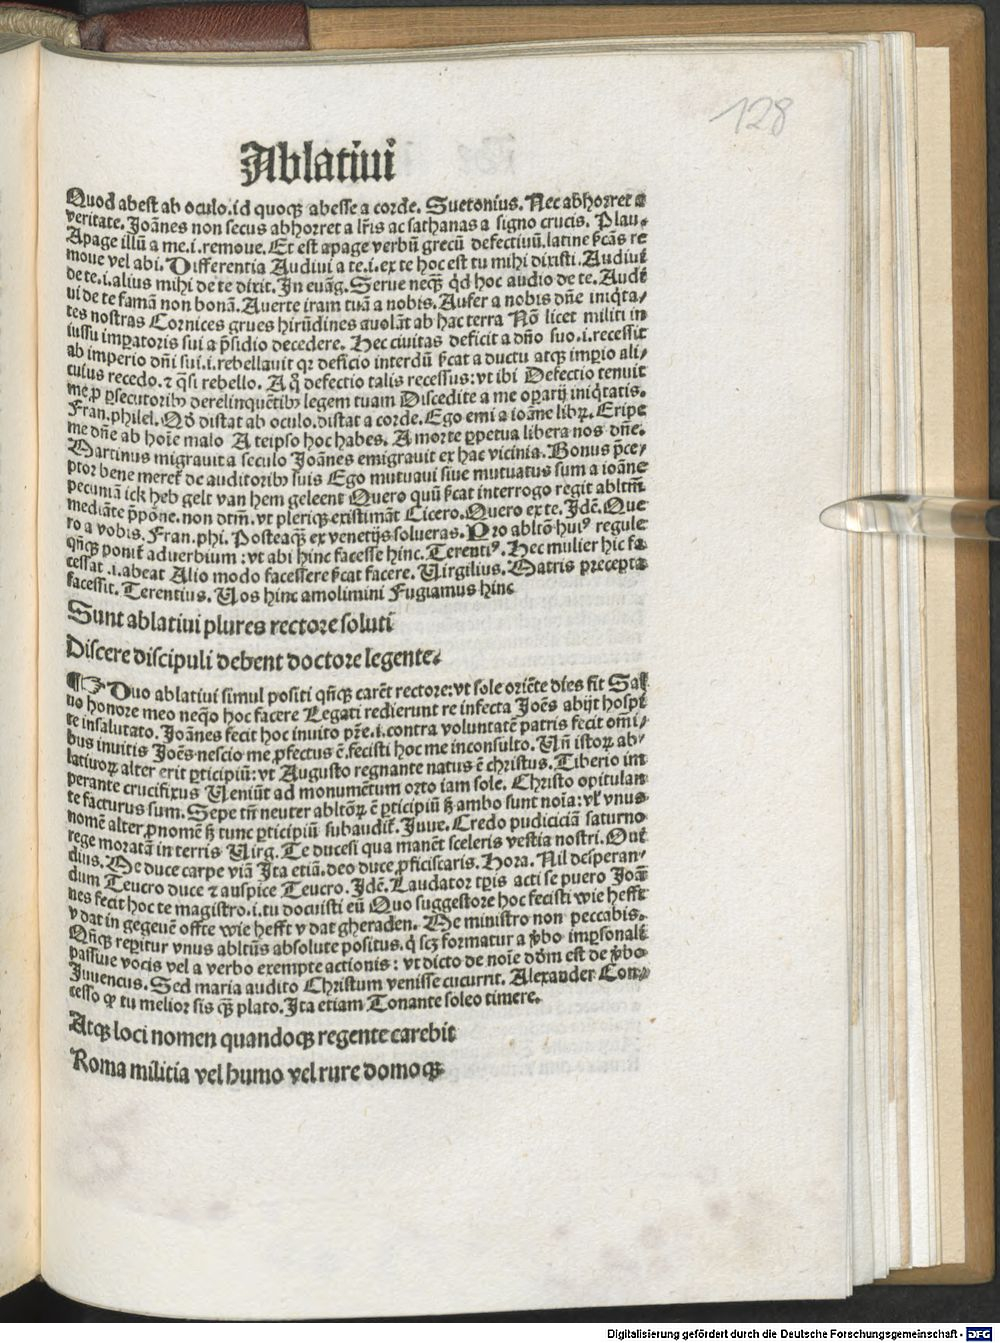 128
Ablatiui
Quod abest ab oculo.id quoqꝫ abesse a corde. Suetonius. Nec abhorret a
veritate. Joānes non secus abhorret a lr̄is ac sathanas a signo crucis. Plau.
Apage illū a me.i.remoue. Et est apage verbū grecū defectiuū.latine
moue vel abi. Differentia Audiui a te.i.ex te hoc est tu mihi dixisti. Audiui
de te.i.alius mihi de te dixit. In euāg. Serue neqꝫ qd̄ hoc audio de te. Audi
ui de te famā non bonā. Auerte iram tuā a nobis. Aufer a nobis dn̄e iniqͥta/
tes nostras Cornices grues hirūdines auolāt ab hac terra Nō licet militi in
iussu imꝑatoris sui a p̄sidio decedere. Hec ciuitas deficit a dn̄o suo.i.recessit
ab imperio dn̄i sui.i.rebellauit qꝛ deficio interdū a ductu atqꝫ imꝑio ali/
cuius recedo.⁊ qͣsi rebello. A qͦ defectio talis recessus: vt ibi Defectio tenuit
me ꝓ ꝑsecutoribꝫ derelinquētibꝫ legem tuam Discedite a me oꝑarij iniqͥtatis.
Fran.philel. distat ab oculo.distat a corde. Ego emi a ioāne libꝝ. Eripe
me dn̄e ab hoīe malo A teipso hoc habes. A morte ꝑpetua libera nos dn̄e.
Martinus migrauit a seculo Joānes emigrauit ex hac vicinia. Bonus p̄ce/
ptor bene meret̄ de auditoribꝫ suis Ego mutuaui siue mutuatus sum a ioāne
pecuniā ick heb gelt van hem geleent Quero quū interrogo regit abltm̄
mediāte p̄pōne. non dtm̄. vt pleriqꝫ existimāt Cicero. Quero ex te. Jdē. Que
ro a vobis. Fran.phi. Posteaqꝫ ex venetijs solueras. Pro abltō huiꝰ regule
qn̄qꝫ ponit̄ aduerbium : vt abi hinc facesse hinc. Terentiꝰ. Hec mulier hic fa
cessat .i.abeat Alio modo facessere facere. Virgilius. Matris precepta
facessit. Terentius. Vos hinc amolimini Fugiamus hinc
Sunt ablatiui plures rectore soluti
Discere discipuli debent doctore legente.
Duo ablatiui simul positi qn̄qꝫ carēt rectore: vt sole oriēte dies fit Sal
uo honore meo neqͦo hoc facere Legati redierunt re infecta Joēs abijt hospi
te insalutato. Joānes fecit hoc inuito pr̄e.i.contra voluntatē patris fecit omi/
bus inuitis Joēs nescio me ꝓfectus ē.fecisti hoc me inconsulto. Vn̄ istoꝝ ab/
latiuoꝝ alter erit ꝑticipiū: vt Augusto regnante natus ē christus. Tiberio im
perante crucifixus Veniūt ad monumētum orto iam sole. Christo opitulan
te facturus sum. Sepe tn̄ neuter abltōꝝ ē ꝑticipiū sꝫ ambo sunt noīa: vnus
nomē alter ꝓnomē sꝫ tunc ꝑticipiū subaudit̄. Juue. Credo pudiciciā saturno
rege moratā in terris Virg. Te duce si qua manēt sceleris vestia nostri. Oui
dius. Me duce carpe viā Ita etiā.deo duce ꝓficiscaris. Hora. Nil desperan/
dum Teucro duce ⁊ auspice Teucro. Jdē. Laudator tꝑis acti se puero Joā
nes fecit hoc te magistro.i.tu docuisti eū Quo suggestore hoc fecisti wie hefft
v dat in gegeuē offte wie hefft v dat gheraden. Me ministro non peccabis.
Qn̄qꝫ reꝑitur vnus abltūs absolute positus.qͥ scꝫ formatur a v̓bo imꝑsonali
passiue vocis vel a verbo exempte actionis : vt dicto de noīe dd̄m est de v̓bo
Juuencus. Sed maria audito Christum venisse cucurrit. Alexander Con/
cesso ꝙ tu melior sis qꝫ plato. Ita etiam Tonante soleo timere.
Atqꝫ loci nomen quandoqꝫ regente carebit
Roma militia vel humo vel rure domoqꝫ
Digitalisierung gefördert durch die Deutsche Forschungsgemeinschaft - DFG